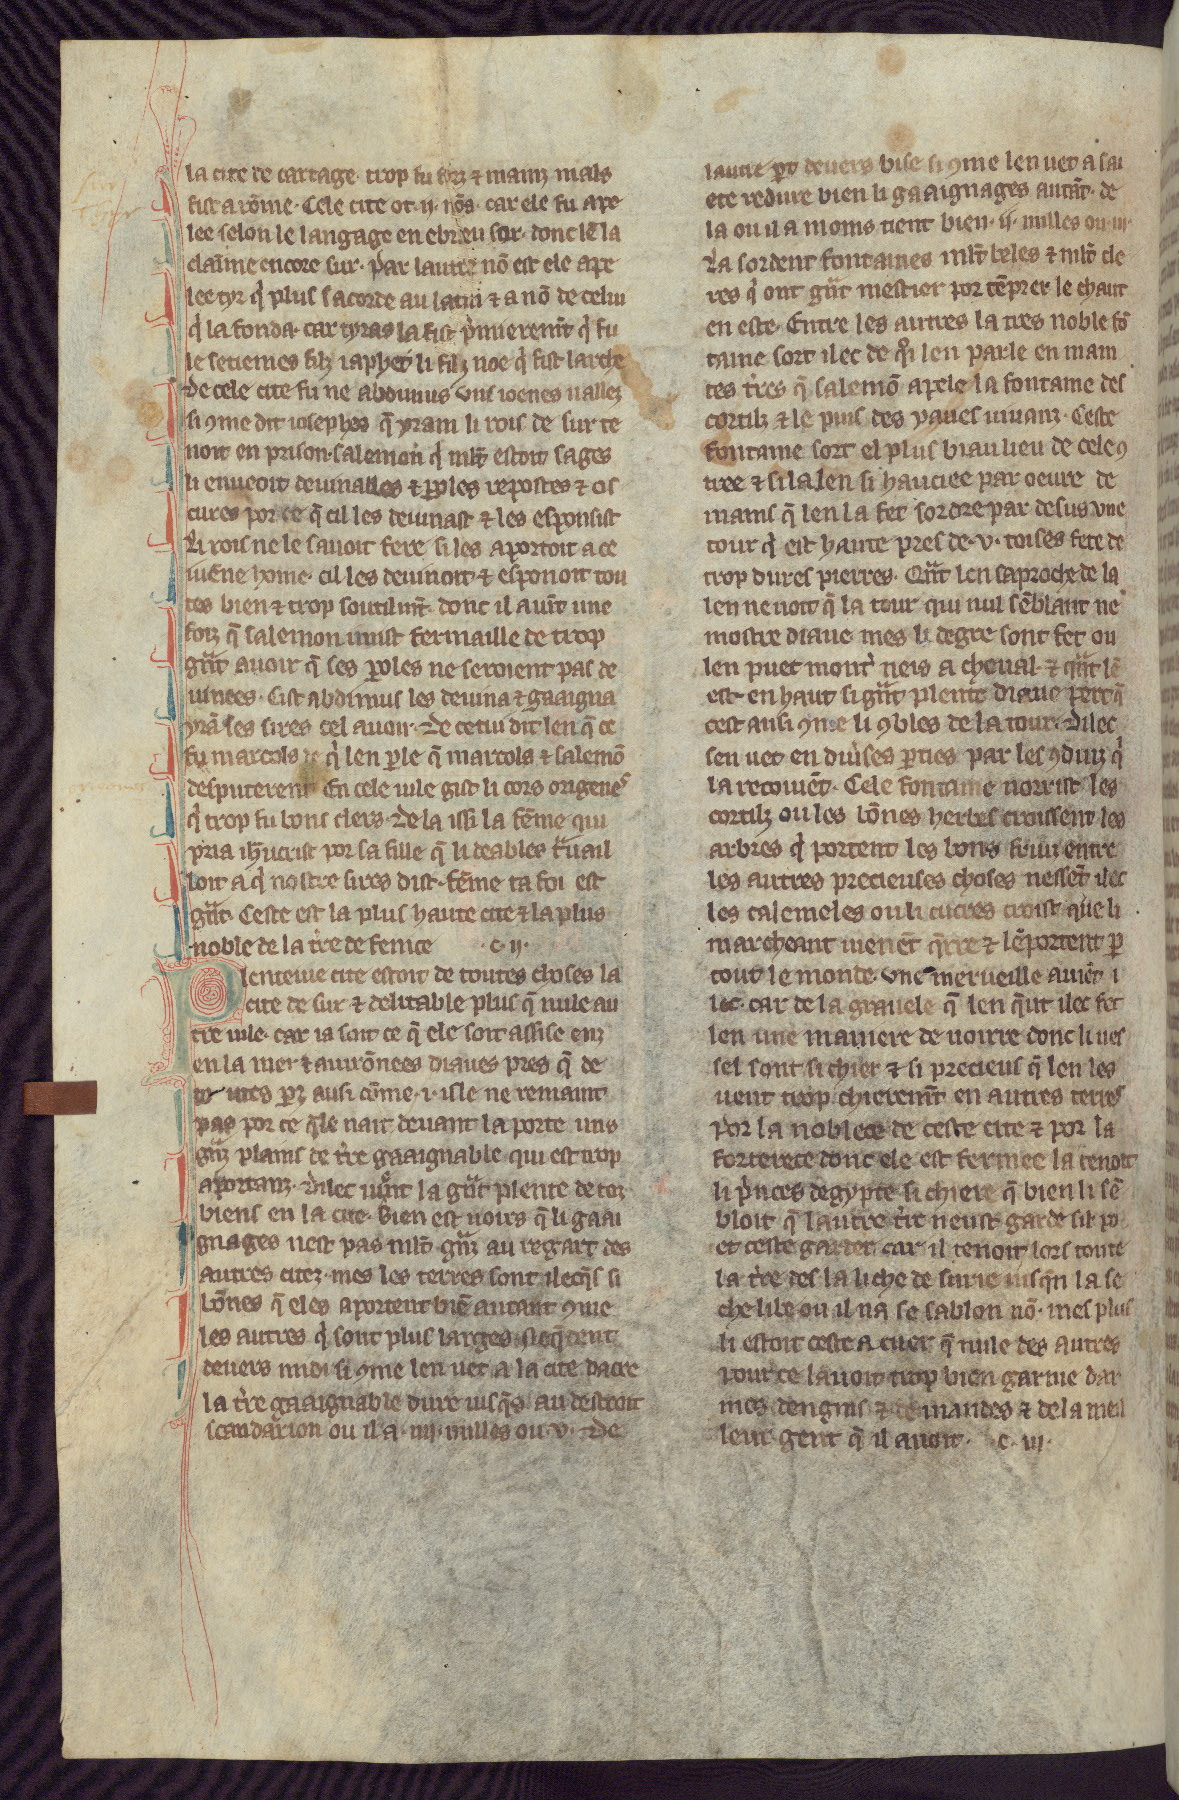 la cite de cartage. trop fu forz ⁊ mainz mals
fist a rōme. Cele cite ot .ij. nōs. car ele fu ape
lee selon le langage en ebrieu sor. donc lē la
claime encore sur. par lautre nō est ele ape
lee tyr q̇ plus sacorde au latin ⁊ a nō de celui
q̇ la fonda. car tyras la fist p̃mierem̃t q̇ fu
le setiemes filz iaphet li filz noe q̇ fist larche
De cele cite fu ne abdimus uns ioenes uallez
si ꝯme dit iosephes q̄ yram li rois de sur te
noit en prison. salemon q̇ ml̃t estoit sages
li enueoit deuinalles ⁊ ꝑoles repostes ⁊ os
cures por ce q̄ cil les deuinast ⁊ les esponsist
Li rois ne le sauoit fere si les aportoit a ce
iuene home. cil les deuinoit ⁊ esponoit tou
tes bien ⁊ trop soutilm̃t. donc il auīt une
foiz q̄ salemon i mist fermaille de trop
gr̃nt auoir q̄ ses ꝑoles ne seroient pas de
uinees. Cist abdimus les deuina ⁊ gaaigna
yrā ses sires cel auoir. De cetui dit len q̄ ce
fu marcols q̇ len ꝑle q̄ marcols ⁊ salemō
desputerent En cele uile gist li cors origenes
q̇ trop fu bons clers. De la issi la fēme qui
pria ih̃ucrist por sa fille q̄ li deables t̃uail
loit a q̇ nostre sires dist. fēme ta foi est
gr̃nt. Ceste est la plus haute cite ⁊ la plus
noble de la t̃re de fenice .c. ij.
Plenteiue cite estoit de toutes choses la
cite de sur ⁊ delitable plus q̄ nule au
tre uile. car ia soit ce q̄ ele soit assise enz
en la mer ⁊ auirōnees diaues pres q̄ de
totes parz ausi cōme .i. isle ne remaint
pas por ce q̄le nait deuant la porte uns
gr̃nz plains de t̃re gaaignable qui est trop
aportanz. Dilec uiēnt la gr̃nt plente de toz
biens en la cite. Bien est uoirs q̄ li gaai
gnages nest pas ml̃t gr̃nz au regart des
autres citez. mes les terres sont ileq̃s si
bōnes q̄ eles aportent biē autant ꝯme
les autres q̇ sont plus larges. Icq̄ tent
deuers midi si ꝯme len uet a la cite dacre
la t̃re gaaignable dure iusq̃s au destroit
scandarion ou il a .iiij. milles ou .v. De
lautre ꝑt deuers bise si ꝯme len uet a sai
ete redure bien li gaaignages autāt. de
la ou il a moins tient bien .ij. milles ou .iij.
La sordent fontaines ml̃t beles ⁊ ml̃t cle
res q̇ ont gr̃nt mestier por tēprer le chaut
en este. Entre les autres la tres noble fō
taine sort ilec de q̇i len parle en main
tes t̃res q̄ salemō apele la fontaine des
cortilz ⁊ le puis des yaues uiuanz. Ceste
fontaine sort el plus biau lieu de cele ꝯ
tree ⁊ si la len si hauciee par oeure de
mains q̄ len la fet sordre par desus une
tour q̇ est haute pres de .v. toises fete de
trop dures pierres. Qñt len saproche de la
len ne uoit q̄ la tour qui nul sēblant ne
mostre diaue. mes li degre sont fet ou
len puet mont̃ neis a cheual. ⁊ qñt lē
est en haut si gr̃nt plente diaue pert q̄
cest ausi ꝯme li ꝯbles de la tour. Dilec
sen uet en diũses ꝑties par les ꝯduiz q̇
la recoiuēt. Cele fontaine norrist les
cortilz ou les bōnes herbes croissent les
arbres q̇ portent les bons fruiz entre
les autres precieuses choses nessēt ilec
les calemeles ou li cucres croist que li
marcheant uienēt q̄rre ⁊ lēportent ꝑ
tout le monde. Une merueille auiēt i
lec. car de la grauele q̄ len q̄ut ilec fet
len une maniere de uoirre donc li ues
sel sont si chier ⁊ si precieus q̄ len les
uent trop chierem̃t en autres terres
Por la noblece de ceste cite ⁊ por la
forterece donc ele est fermee la tenoit
li p̃nces degypte si chiere q̄ bien li sē
bloit q̄ lautre t̃re neust garde sil po
et ceste garder. car il tenoit lors toute
la t̃re des la liche de surie iusq̃n la se
che libe ou il na se sablon nō. mes plus
li estoit ceste a cuer q̄ nule des autres
Pour ce lauoit trop bien garnie dar
mes dengins ⁊ de uiandes ⁊ de la meil
leur gent q̄ il auoit. .c. iij.